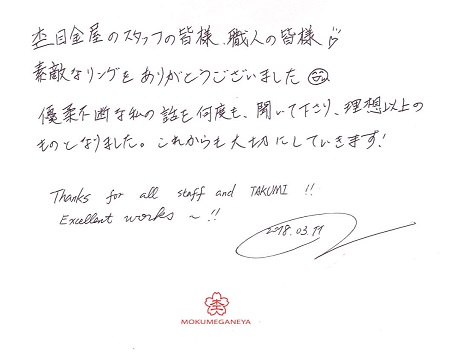 杢目金屋のスタッフの皆様、職人の皆様♪
素敵なリングをありがとうございました
優柔不断な私の話を何度も、聞いて下さり、理想以上の
ものとなりました。これからも大切にしていきます!
Thanks for all staff and TAKUMI !!
Excellent works ~ !!
2018.03.11
杢
MOKUMEGANEYA